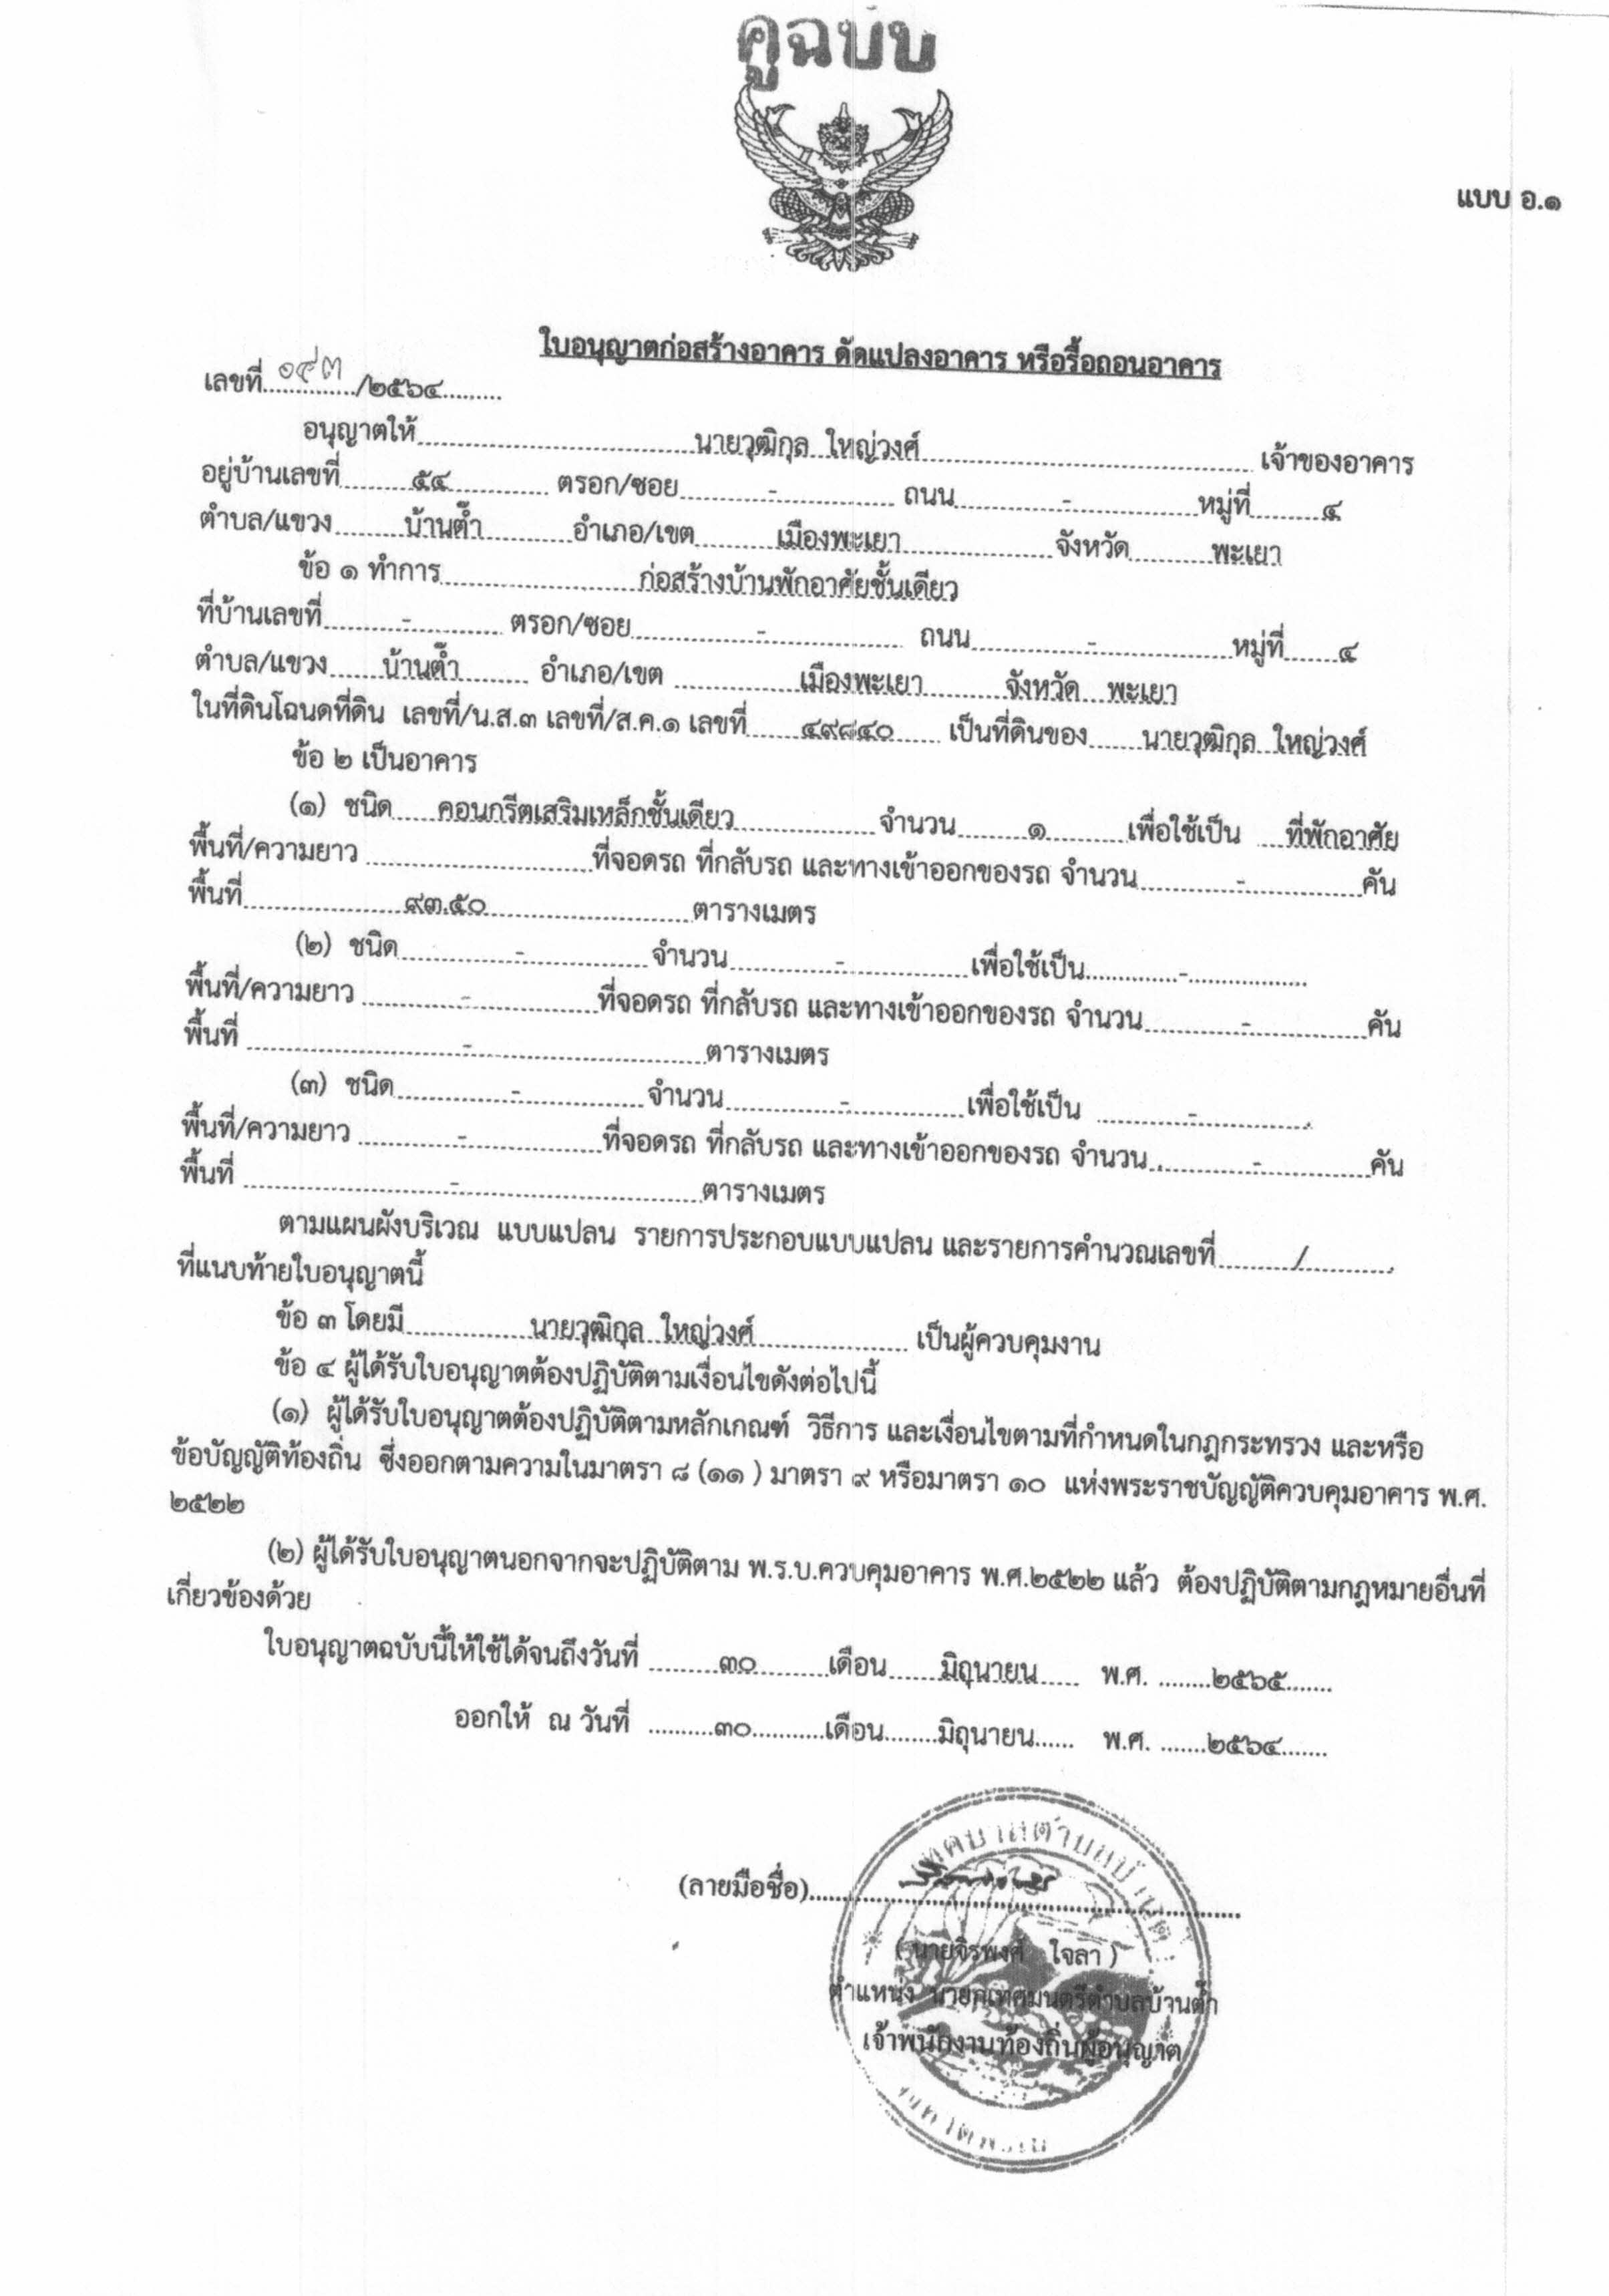 คู่ฉบับ
แบบ อ.๑
ใบอนุญาตก่อสร้างอาคาร ดัดแปลงอาคาร หรือรื้อถอนอาคาร
เลขที่ ๐๔๓ /๒๕๖๔
อนุญาตให้ นายวุฒิกุล ใหญ่วงศ์ เจ้าของอาคาร
อยู่บ้านเลขที่ ๕๔ ตรอก/ซอย - ถนน - หมู่ที่ ๔
ตำบล/แขวง บ้านต๊ำ อำเภอ/เขต เมืองพะเยา จังหวัด พะเยา
ข้อ ๑ ทำการ ก่อสร้างบ้านพักอาศัยชั้นเดียว
ที่บ้านเลขที่ - ตรอก/ซอย - ถนน - หมู่ที่ ๔
ตำบล/แขวง บ้านต๊ำ อำเภอ/เขต เมืองพะเยา จังหวัด พะเยา
ในที่ดินโฉนดที่ดิน เลขที่/น.ส.๓ เลขที่/ส.ค.๑ เลขที่ ๔๙๘๔๐ เป็นที่ดินของ นายวุฒิกุล ใหญ่วงศ์
ข้อ ๒ เป็นอาคาร
(๑) ชนิด คอนกรีตเสริมเหล็กชั้นเดียว จำนวน ๑ เพื่อใช้เป็น ที่พักอาศัย
พื้นที่/ความยาว ที่จอดรถ ที่กลับรถ และทางเข้าออกของรถ จำนวน - คัน
พื้นที่ ๙๓.๕๐ ตารางเมตร
(๒) ชนิด - จำนวน - เพื่อใช้เป็น -
พื้นที่/ความยาว - ที่จอดรถ ที่กลับรถ และทางเข้าออกของรถ จำนวน - คัน
พื้นที่ - ตารางเมตร
(๓) ชนิด - จำนวน - เพื่อใช้เป็น -
พื้นที่/ความยาว - ที่จอดรถ ที่กลับรถ และทางเข้าออกของรถ จำนวน - คัน
พื้นที่ - ตารางเมตร
ตามแผนผังบริเวณ แบบแปลน รายการประกอบแบบแปลน และรายการคำนวณเลขที่ /
ที่แนบท้ายใบอนุญาตนี้
ข้อ ๓ โดยมี นายวุฒิกุล ใหญ่วงศ์ เป็นผู้ควบคุมงาน
ข้อ ๔ ผู้ได้รับใบอนุญาตต้องปฏิบัติตามเงื่อนไขดังต่อไปนี้
(๑) ผู้ได้รับใบอนุญาตต้องปฏิบัติตามหลักเกณฑ์ วิธีการ และเงื่อนไขตามที่กำหนดในกฎกระทรวง และหรือ
ข้อบัญญัติท้องถิ่น ซึ่งออกตามความในมาตรา ๘ (๑๑ ) มาตรา ๙ หรือมาตรา ๑๐ แห่งพระราชบัญญัติควบคุมอาคาร พ.ศ.
๒๕๒๒
(๒) ผู้ได้รับใบอนุญาตนอกจากจะปฏิบัติตาม พ.ร.บ.ควบคุมอาคาร พ.ศ.๒๕๒๒ แล้ว ต้องปฏิบัติตามกฎหมายอื่นที่
เกี่ยวข้องด้วย
ใบอนุญาตฉบับนี้ให้ใช้ได้จนถึงวันที่ ๓๐ เดือน มิถุนายน พ.ศ. ๒๕๖๕
ออกให้ ณ วันที่ ๓๐ เดือน มิถุนายน พ.ศ. ๒๕๖๔
(ลายมือชื่อ)
( นายจิรพงศ์ ใจลา )
ตำแหน่ง นายกเทศมนตรีตำบลบ้านต๊ำ
เจ้าพนักงานท้องถิ่นผู้อนุญาต